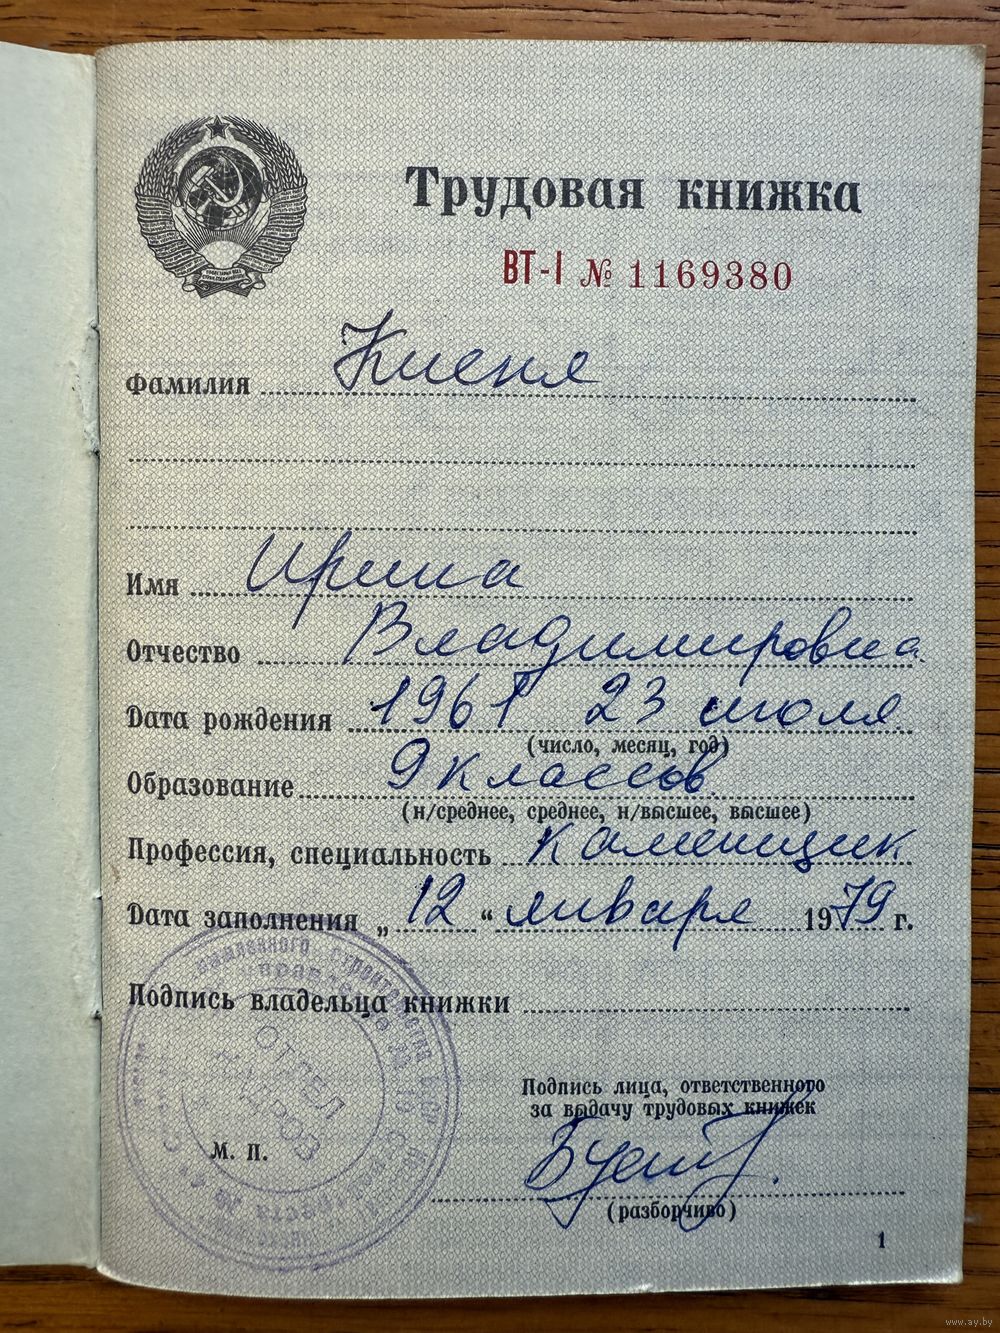 Трудовая книжка
ВТ-I № 1169380
Фамилия Киеня
Имя Ирина
Отчество Владимировна
Дата рождения 1961 23 июля
(число, месяц, год)
Образование 9 классов
(н/среднее, среднее, н/высшее, высшее)
Профессия, специальность каменщик
Дата заполнения „ 12 “ января 1979 г.
Подпись владельца книжки
ОТДЕЛ
КАДРОВ
Подпись лица, ответственного
за выдачу трудовых книжек
М. П.
(разборчиво)
1
www.ay.by